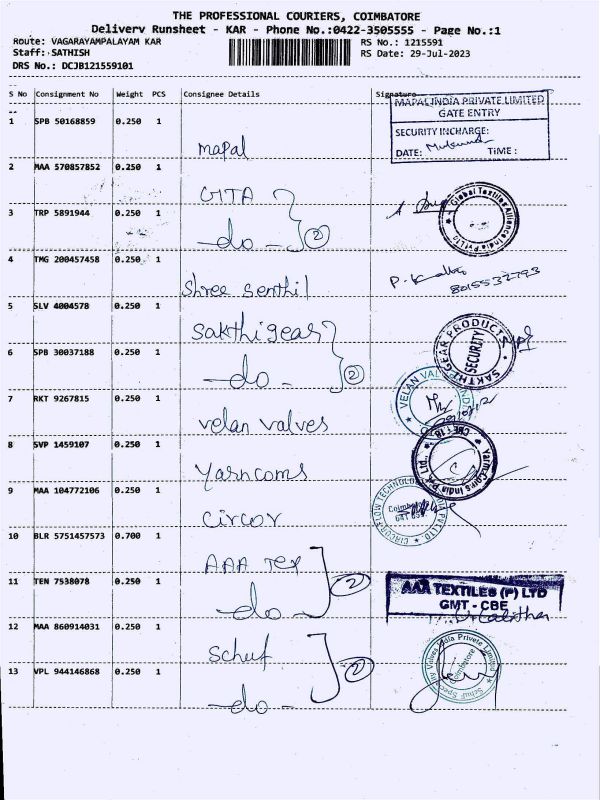 THE PROFESSIONAL COURIERS, COIMBATORE
Delivery Runsheet - KAR - Phone No.:0422-3505555 - Page No.:1
Route: VAGARAYAMPALAYAM KAR
RS No.: 1215591
Staff: SATHISH
RS Date: 29-Jul-2023
DRS No.: DCJB121559101
S No Consignment No Weight PCS Consignee Details Signature
1 SPB 50168859 0.250 1 mapal
MAPAL INDIA PRIVATE LIMITED
GATE ENTRY
SECURITY INCHARGE:
DATE: TIME :
2 MAA 570857852 0.250 1 GITA
3 TRP 5891944 0.250 1 -do- 2
Global Textiles Alliance India Pvt Ltd
4 TMG 200457458 0.250 1 Shree Senthil
8015532793
5 SLV 4004578 0.250 1 Sakthigear
6 SPB 30037188 0.250 1 -do- 2
SAKTHI GEAR PRODUCTS
SECURITY
7 RKT 9267815 0.250 1 velan valves
VELAN VALVES INDIA
8 SVP 1459107 0.250 1 Yarncoms
Yarn-Coms India Pvt. Ltd.
9 MAA 104772106 0.250 1 Circor
CIRCOR FLOW TECHNOLOGIES INDIA PVT LTD.
Coimbatore
10 BLR 5751457573 0.700 1 AAA Tex
11 TEN 7538078 0.250 1 -do- 2
AAA TEXTILES (P) LTD
GMT - CBE
12 MAA 860914031 0.250 1 Schuf
13 VPL 944146868 0.250 1 -do- 2
Schuf Speciality Valves India Private Limited
Coimbatore